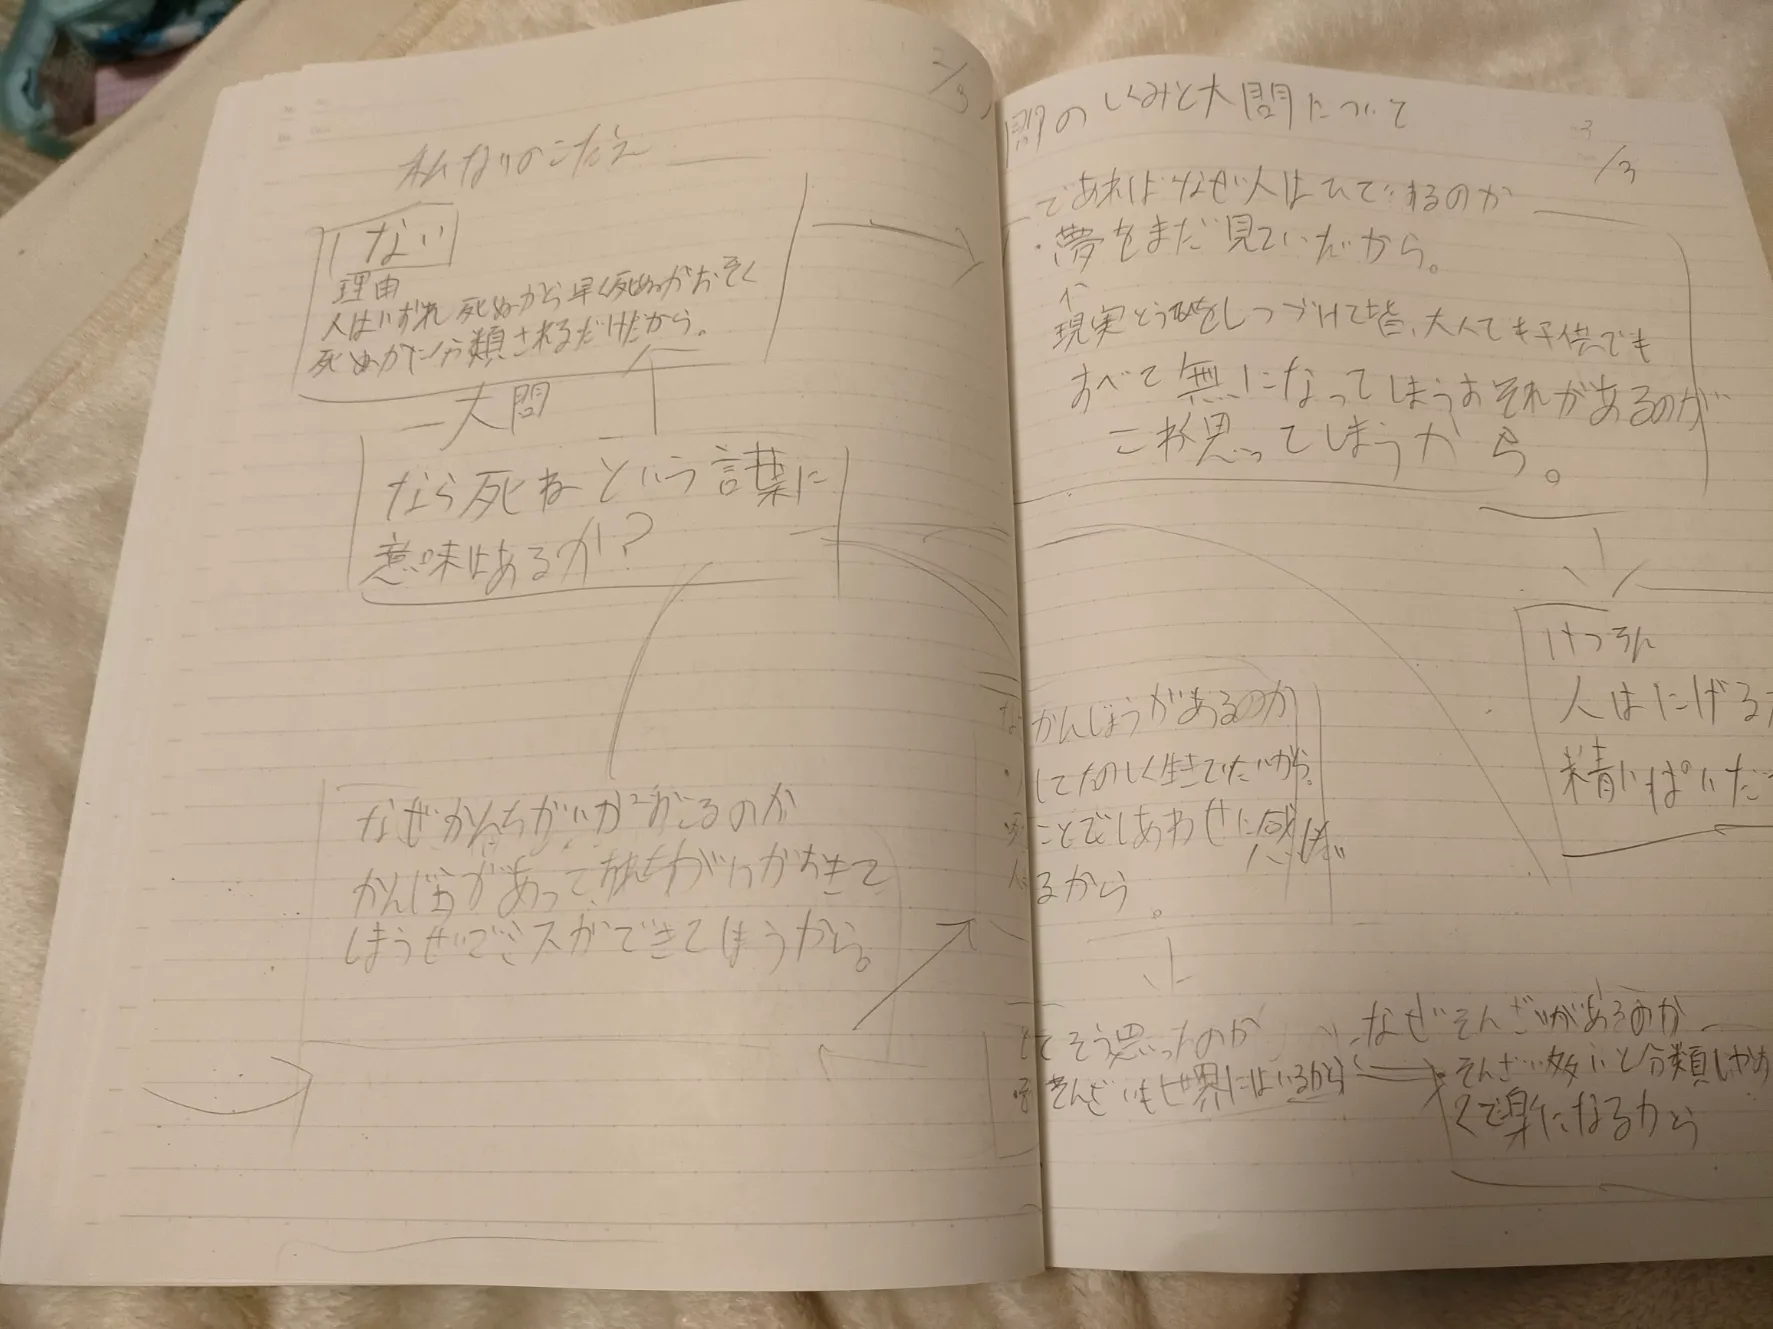 2/3
私なりのこたえ
ない
理由
人はいずれ死ぬから早く死ぬかおそく
死ぬかに分類されるだけだから。
大問
なら死ねという言葉に
意味はあるか?
なぜかんちがいがおこるのか
かんじょうがあって、かちがいがおきて
しまうぜいでミスができてしまうから。
問のしくみと大問について
3/3
であればなぜ人はひていするのか
・夢をまだ見ていたいから。
現実とうひをしつづけて皆、大人でも子供でも
すべて無になってしまうおそれがあるのが
こわく思ってしまうから。
けつろん
人はにげる
精いっぱいだ
かんじょうがあるのか
してたのしく生きていたいから。
ことでしあわせに感じ
るから。
てそう思ったのか
そんざいも世界にはいるから
なぜそんざいがあるのか
そんざい多いと分類しやす
くて楽になるから